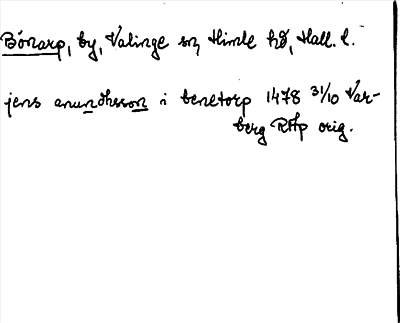 Bönarp, by, Valinge sn, Himle hd, Hall. l.
jens anundhsson i benetorp 1478 31/10 Var-
berg RAp orig.